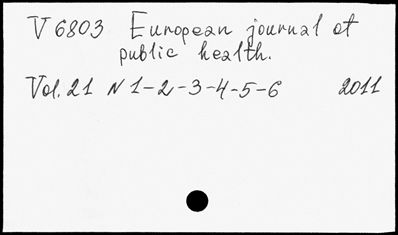 V 6803 European journal of
public health.
Vol. 21 N 1-2-3-4-5-6 2011